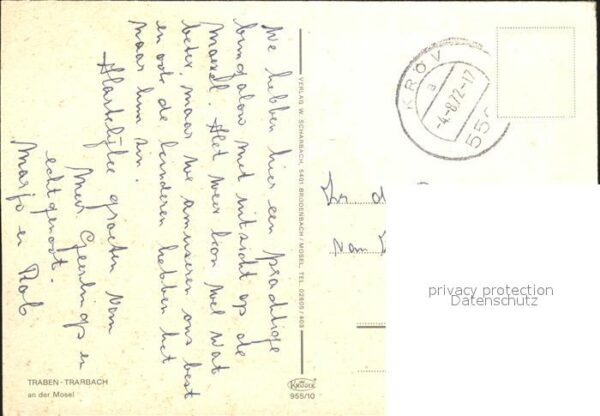 We hebben hier een prachtige
bungalow met uitzicht op de
Moesel. Het weer kon wel wat
beter maar we amuseren ons best
en ook de kinderen hebben het
naar hun zin.
Hartelijke groeten van
Mevr Geerlings en
echtgenoot.
Marjo en Rob
VERLAG W. SCHARBACH, 5401 BRODENBACH / MOSEL, TEL. 02605 / 403
KRÖV
a
-4-8.72-17
550
van
privacy protection
Datenschutz
TRABEN - TRARBACH
an der Mosel
KRÜGER
955/10